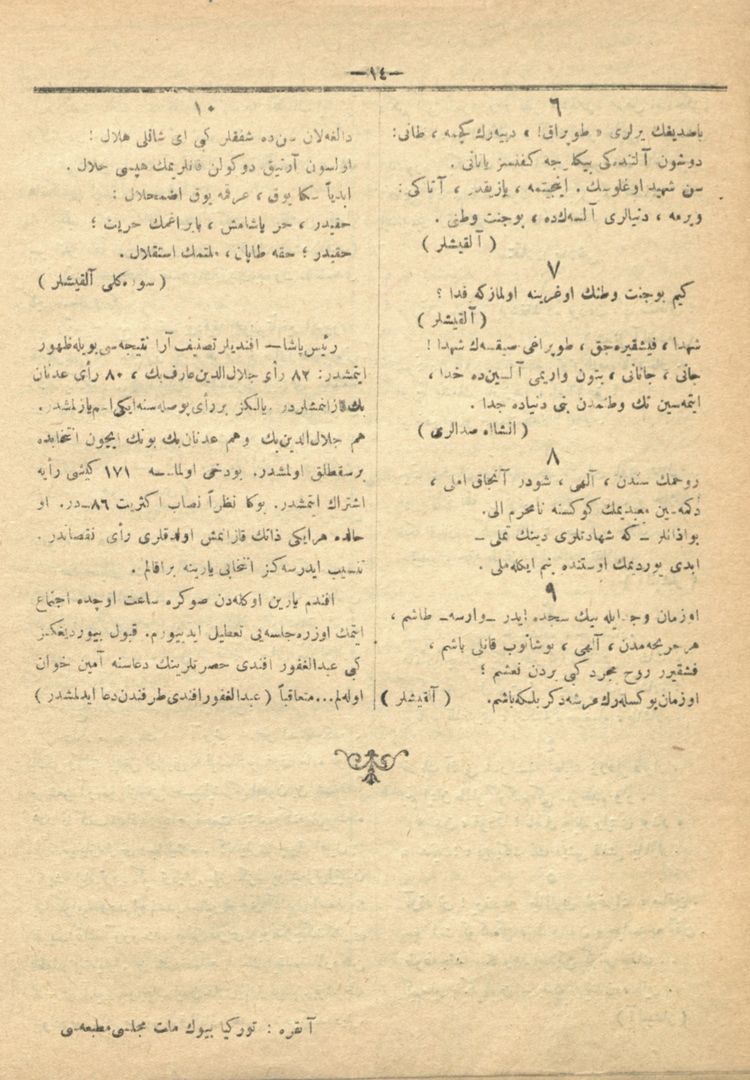 —١٤—
٦
باصدیغك یرلری « طوپراق! » دییەرك كچمە ، طانی:
دوشون آلتندەكی بیكلرجە كفنسز یاتانی .
سن شهید اوغلوسك . اینجیتمە ، یازیقدر ، آتاكی :
ویرمە ، دنیالری آلسەكدە ، بوجنت وطنی .
( آلقیشلر )
٧
كیم بوجنت وطنك اوغرینە اولمازكە فدا ؟
( آلقیشلر )
شهدا ، فیشقیرەجق ، طوپراغی صیقسەك شهدا !
جانی ، جانانی ، بتون واریمی آلسین دە خدا ،
ایتمەسین تك وطنمدن بنی دنیادە جدا .
( انشااللە صدالری )
٨
روحمك سندن ، آلهی ، شودر آنجاق املی ،
دكمەسین معبدیمك كوكسنە نامحرم الی.
بواذانلر ــ كە شهادتلری دینك تملی ــ
ابدی یوردیمك اوستندە بنم ایكلەملی .
٩
اوزمان وجد ایلە بیك سجدە ایدر ــ وارسە ــ طاشم ،
هر جریحەمدن ، آلهی ، بوشانوب قانلی یاشم ،
فیشقیرر روح مجرد كبی یردن نعشم ؛
اوزمان یوكسلەرك عرشە دكر بلكە باشم. ( آلقیشلر )
١٠
دالغەلان سن دە شفقلر كبی ای شانلی هلال !
اولسون آرتیق دوكولن قانلریمك هپسی حلال .
ابدیاً سكا یوق ، عرقمە یوق اضمحلال :
حقیدر ، حر یاشامش ، بایراغمك حریت ؛
حقیدر ؛ حقە طاپان ، ملتمك استقلال .
( سورەكلی آلقیشلر )
رئیس پاشا — افندیلر تصنیف آرا نتیجەسی بویلە ظهور
ایتمشدر: ٨٢ رأی جلال الدین عارف بك ، ٨٠ رأی عدنان
بك قازانمشلردر. یالكز بر رأی بوصلەسنە ایكی اسم یازلمشدر.
هم جلال الدین بك وهم عدنان بك بونك ایچون انتخابدە
برسقطلق اولمشدر. بودخی اولماسە ١٧١ كیشی رأیە
اشتراك اتمشدر. بوكا نظراً نصاب اكثریت ٨٦ در. او
حالدە هر ایكی ذاتك قازانمش اولدقلری رأی نقصاندر.
تنسیب ایدرسەكز انتخابی یارینە براقالم .
افندم یارین اوكلەدن صوكرە ساعت اوچدە اجتماع
ایتمك اوزرە جلسەیی تعطیل ایدییورم. قبول بیوردیغكز
كبی عبدالغفور افندی حضرتلرینك دعاسنە آمین خوان
اولەلم... متعاقباً ( عبدالغفور افندی طرفندن دعا ایدلمشدر )
آنقرە : توركیا بیوك ملت مجلسی مطبعەسی